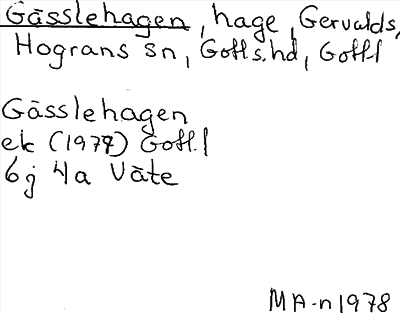 Gässlehagen, hage, Gervalds,
Hogräns sn, Gotl s. hd, Gotl. l
Gässlehagen
ek (1977) Gotl. l
6j 4a Väte
MA-n 1978